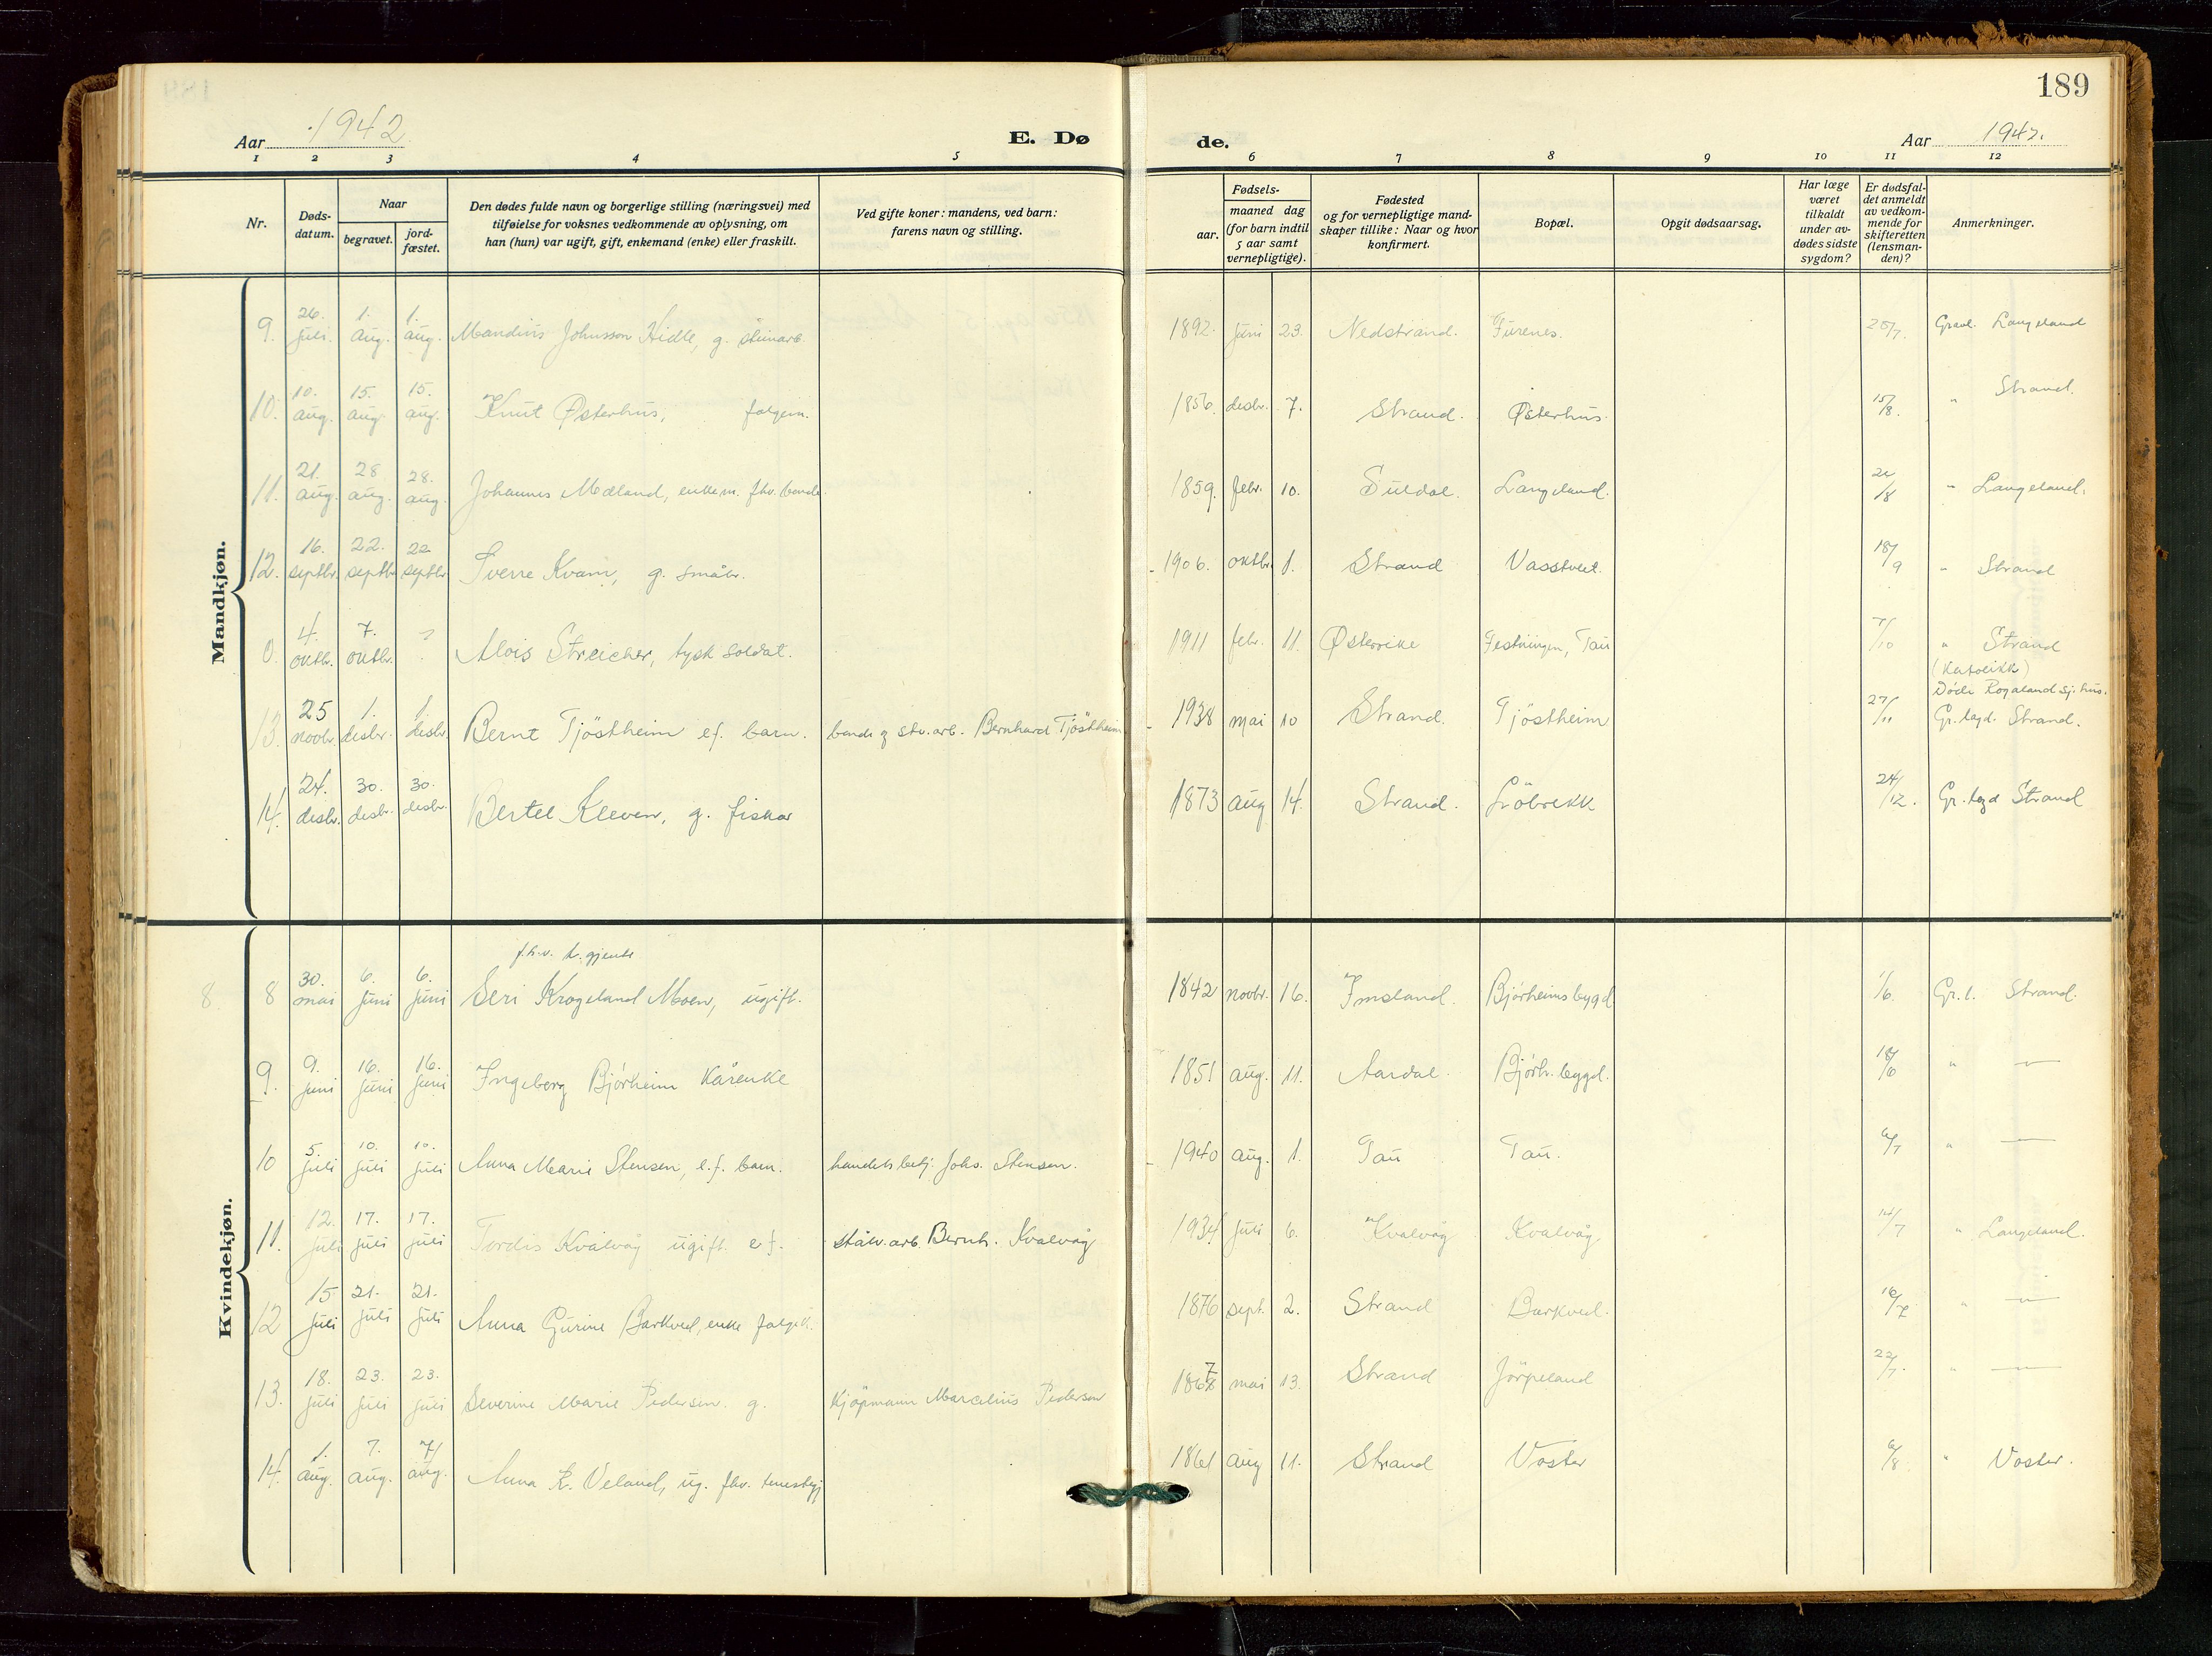 189
Aar 1942 E. Dø de. Aar 1942.
1 2 3 4 5 6 7 8 9 10 11 12
Nr.
Døds-
datum.
Naar
begravet.
jord-
fæstet.
Den dødes fulde navn og borgerlige stilling (næringsvei) med
tilføielse for voksnes vedkommende av oplysning, om
han (hun) var ugift, gift, enkemand (enke) eller fraskilt.
Ved gifte koner: mandens, ved barn:
farens navn og stilling.
Fødsels-
aar.
maaned dag
(for barn indtil
5 aar samt
vernepligtige).
Fødested
og for vernepligtige mand-
skaper tillike: Naar og hvor
konfirmert.
Bopæl.
Opgit dødsaarsag.
Har læge
været
tilkaldt
under av-
dødes sidste
sygdom?
Er dødsfal-
det anmeldt
av vedkom-
mende for
skifteretten
(lensman-
den)?
Anmerkninger.
Mandkjøn.
9. 26. juli. 1. aug. 1. aug. Mandius Johnsson Hidle, g. steinarb. 1892. juni 23. Nedstrand. Furenes. 28/7. Gravl. Langeland
10. 10. aug. 15. aug. 15. aug. Knut Østerhus, folgem. 1856. desbr. 7. Strand. Østerhus. 15/8. " Strand.
11. 21. aug. 28 aug. 28. aug. Johannes Mæland, enkem. fhv. bonde. 1859. febr. 10. Suldal. Langeland. 24/8 " Langeland.
12. 16. septbr. 22. septbr. 22 septbr. Sverre Kvam, g. småbr. 1906. oktbr. 1. Strand Vasstveit. 18/9 " Strand
0. 4. oktbr. 7. oktbr. ? Alois Streicher, tysk soldat. 1911 febr. 11. Østerrike Festningen, Tau 7/10 " Strand
(Katolikk)
13. 25 novbr. 1. desbr. 1. desbr. Bernt Tjöstheim e.f. barn. bonde g stv. arb. Bernhard Tjöstheim 1938 mai 10 Strand. Tjöstheim 27/11 Döde Rogaland sj. hus.
Gr. lagd. Strand.
14. 24. desbr. 30. desbr. 30. desbr. Bertel Kleven, g. fiskar 1873 aug 14. Strand. Löbrekk 24/12. Gr. lagd Strand
Kvindekjøn.
f.h.v. t. gjente
8. 8 30. mai 6. juni 6. juni Seri Krogeland Moen, ugift. 1842 novbr. 16. Imsland. Bjørheimsbygd 1/6. Gr. l. Strand.
9. 9. juni 16. juni 16. juni Ingeborg Bjørheim kårenke 1851 aug. 11. Aardal. Bjørh. bygd. 18/6 " —
10 5. juli 10. juli 10. juli Anna Marie Stensen, e.f. barn. handelsbetj. Johs. Stensen. 1940 aug. 1. Tau Tau. 6/7 " —
11. 12. juli 17. juli 17. juli Tordis Kvalvåg ugift e f. stålv. arb. Bernh. Kvalvåg 1934 juli 6. Kvalvåg Kvalvåg 14/7 " Langeland.
12 15 juli 21. juli 21. juli Anna Gurine Barkved, enke folgek. 1876 sept. 2. Strand Barkved. 16/7 " —
13. 18. juli 23. juli 23. juli Severine Marie Pedersen. g. Kjöpmann Marcelius Pedersen 1867 mai 13. Strand Jörpeland 22/7. " —
14. 1. aug. 7. aug. 7. aug. Anna K. Veland, ug. fhv. tenestegj 1861 aug 11. Strand Voster 6/8 " Voster.